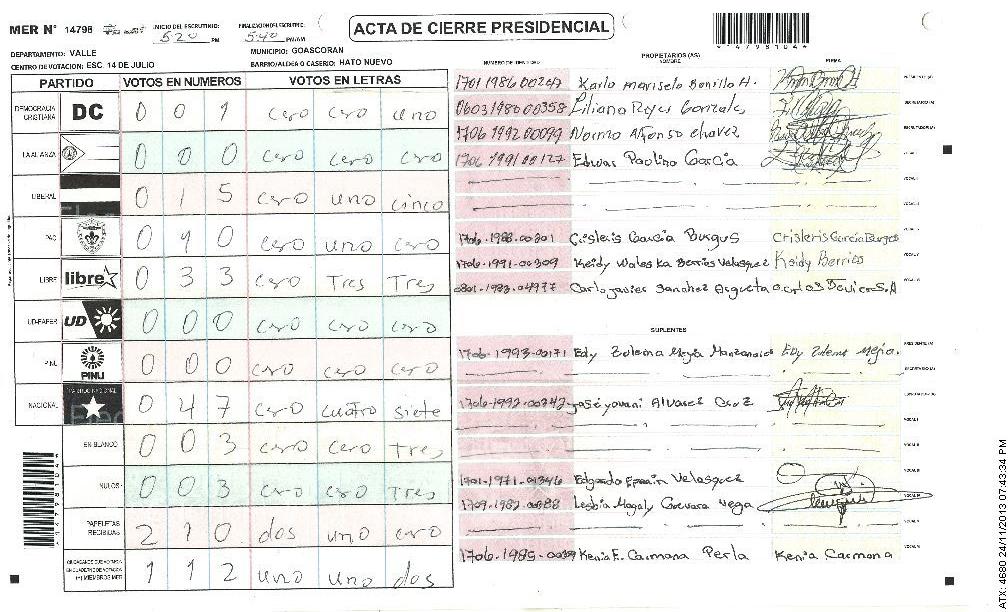 MER N° 14798 INICIO DEL ESCRUTINIO: 5:20 PM FINALIZACION ESCRUTINIO: 5:40 PM/AM ACTA DE CIERRE PRESIDENCIAL
*4798104*
DEPARTAMENTO: VALLE MUNICIPIO: GOASCORAN
CENTRO DE VOTACION: ESC. 14 DE JULIO BARRIO/ALDEA O CASERIO: HATO NUEVO
PARTIDO VOTOS EN NUMEROS VOTOS EN LETRAS
DEMOCRACIA CRISTIANA DC 0 0 1 cero cero uno
LA ALIANZA 0 0 0 cero cero cero
LIBERAL 0 1 5 cero uno cinco
PAC 0 1 0 cero uno cero
LIBRE libre 0 3 3 cero Tres Tres
UD-FAPER UD 0 0 0 cero cero cero
PINU PINU 0 0 0 cero cero cero
NACIONAL 0 4 7 cero cuatro siete
EN BLANCO 0 0 3 cero cero Tres
NULOS 0 0 3 cero cero Tres
PAPELETAS RECIBIDAS 2 1 0 dos uno cero
1 1 2 uno uno dos
NUMERO DE IDENTIDAD PROPIETARIOS (AS) NOMBRE FIRMA
Karla Bonilla H.
0603 1980 00358 Liliana Reyes Gonzales
1706 1992 00099 Norma Alfonso chavez
1706 1991 00127 Edwar Paolino Garcia
1706-1988-00301 Crisleris Garcia Burgus Crisleris Garcia Burgus
1706-1991-00309 Keidy Waleska Berrios Velasquez Keidy Berrios
0801-1983-04977 Carlo javier Sanchez Argueta
SUPLENTES
1706-1993-00171 Edy Zulema Mejia Edy Zulema Mejia.
1706-1992-00342 jose yovani Alvares Cruz
1701-1971-00346 Edgardo Efrain Velasquez
Lesbia Magaly Guevara Vega
Kenia E. Carmona Perla Kenia Carmona
ATX: 4680 24/11/2013 07:43:34 PM